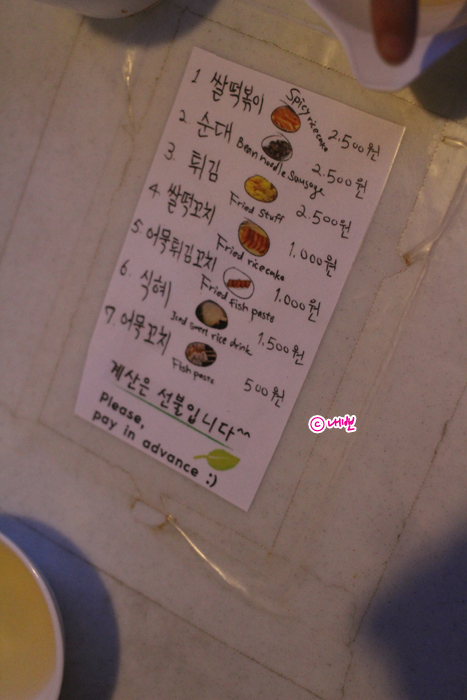 1 쌀떡볶이 Spicy rice cake 2.500원
2. 순대 Bean noodle Sausage 2.500원
3. 튀김 Fried Stuff 2.500원
4. 쌀떡꼬치 Fried ricecake 1.000원
5. 어묵튀김꼬치 Fried fish paste 1.000원
6. 식혜 Iced sweet rice drink 1.500원
7. 어묵꼬치 Fish paste 500원
계산은 선불입니다~
Please,
pay in advance :)